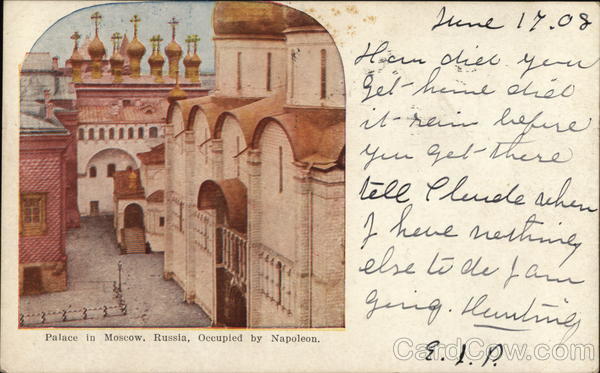 June 17.08
How did you
Get home did
it rain before
you get there
tell Claude when
I have nothing
else to do I am
Going. Hunting
E. I. P.
Palace in Moscow, Russia, Occupied by Napoleon.
CardCow.com